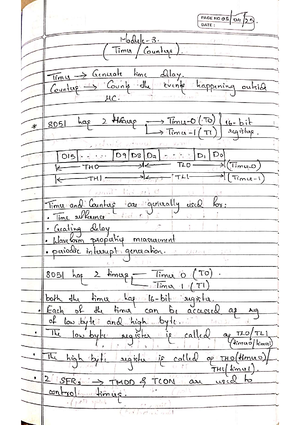 PAGE NO:
DATE:
Module-3.
(Timer/Counter)
Timer → Generate time delay.
Counter → Counts the events happening outside
MC.
* 8051 has 2 timers → Timer-0 (T0) } 16-bit
→ Timer-1 (T1) registers.
D15 . . . . D9 D8 D7 . . . . D1 D0
TH0 TL0 (Timer-0)
TH1 TL1 (Timer-1)
Timer and Counter are generally used for:
• Time reference
• Creating delay
• Waveform properties measurement
• periodic interrupt generation.
8051 has 2 timers Timer 0 (T0)
Timer 1 (T1)
both the timer has 16-bit register.
• Each of the timer can be accessed as reg
of low byte and high byte.
The low byte register is called as TL0/TL1
• The high byte register is called as TH0 (timer0)/
TH1 (timer1).
• 2 SFRs → TMOD & TCON are used to
control timer.